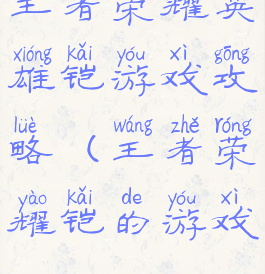 王者荣耀英
xióng kǎi yóu xì gōng
雄铠游戏攻
lüè wáng zhě róng
略（王者荣
yào kǎi de yóu xì
耀铠的游戏